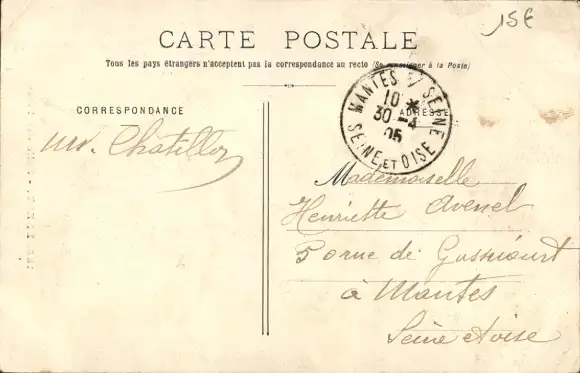 15€
CARTE POSTALE
Tous les pays étrangers n'acceptent pas la correspondance au recto (Se renseigner à la Poste)
CORRESPONDANCE
ADRESSE
MANTES S/ SEINE
10 *
30 -4
05
SEINE ET OISE
Chatillon
Mademoiselle
Henriette Avenel
5 rue de Gassicourt
à Mantes
Seine et oise